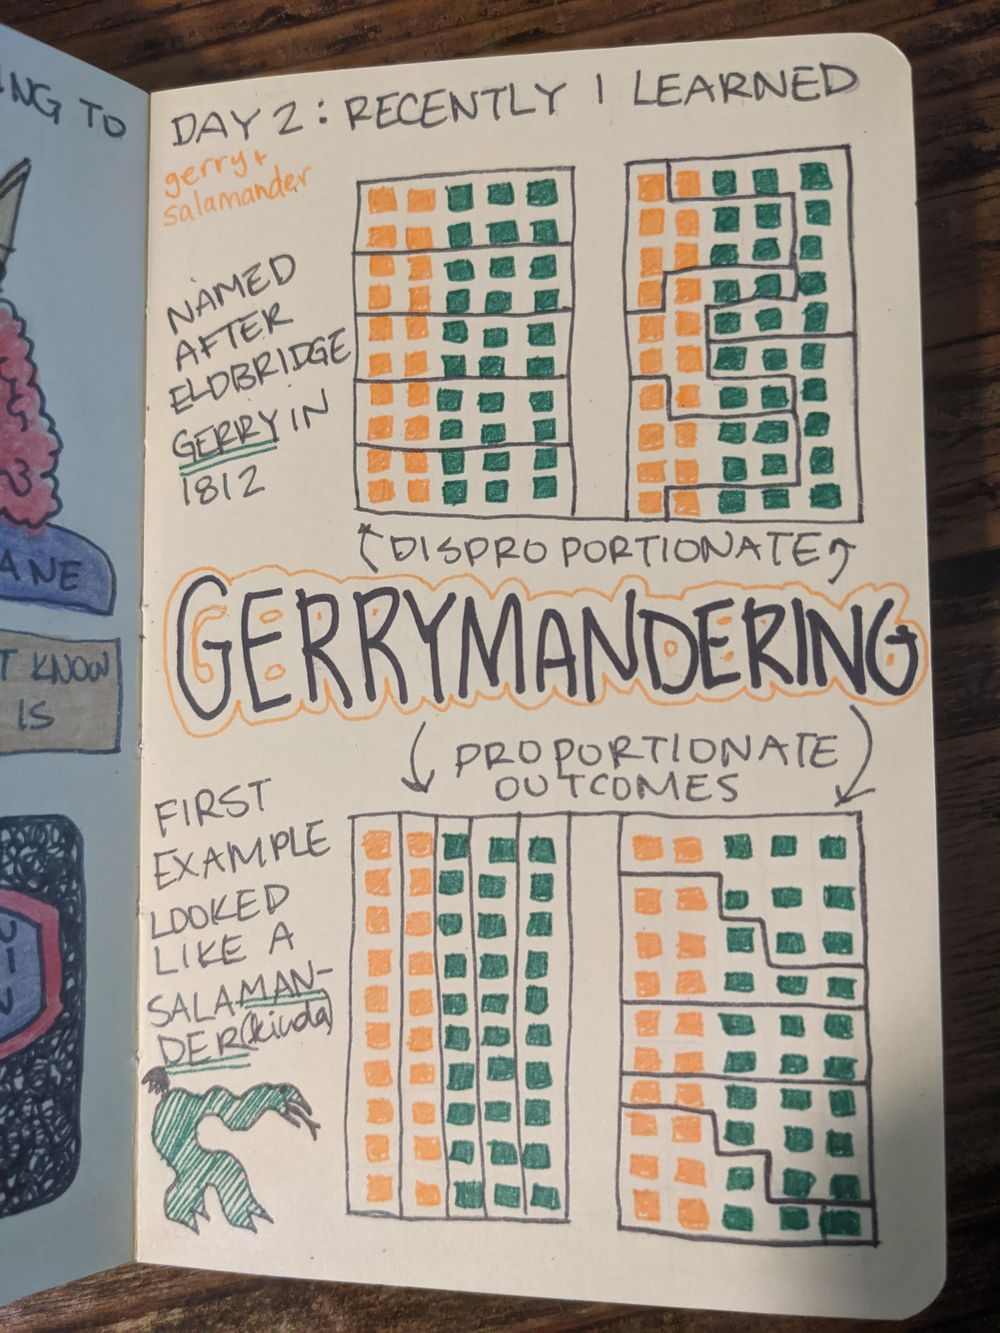 ING TO
ANE
T KNOW
IS
DAY 2: RECENTLY I LEARNED
gerry +
salamander
NAMED
AFTER
ELDBRIDGE
GERRY IN
1812
DISPROPORTIONATE
GERRYMANDERING
PROPORTIONATE
OUTCOMES
FIRST
EXAMPLE
LOOKED
LIKE A
SALAMAN-
DER (kinda)